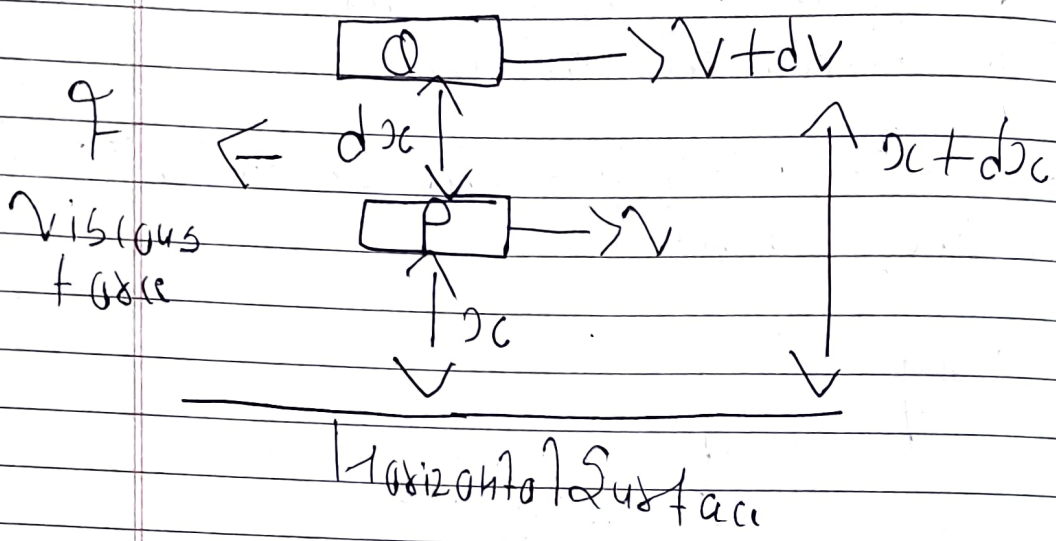 Q → V+dV
F ← dx x+dx
P → V
Viscous
force
x
Horizontal Surface